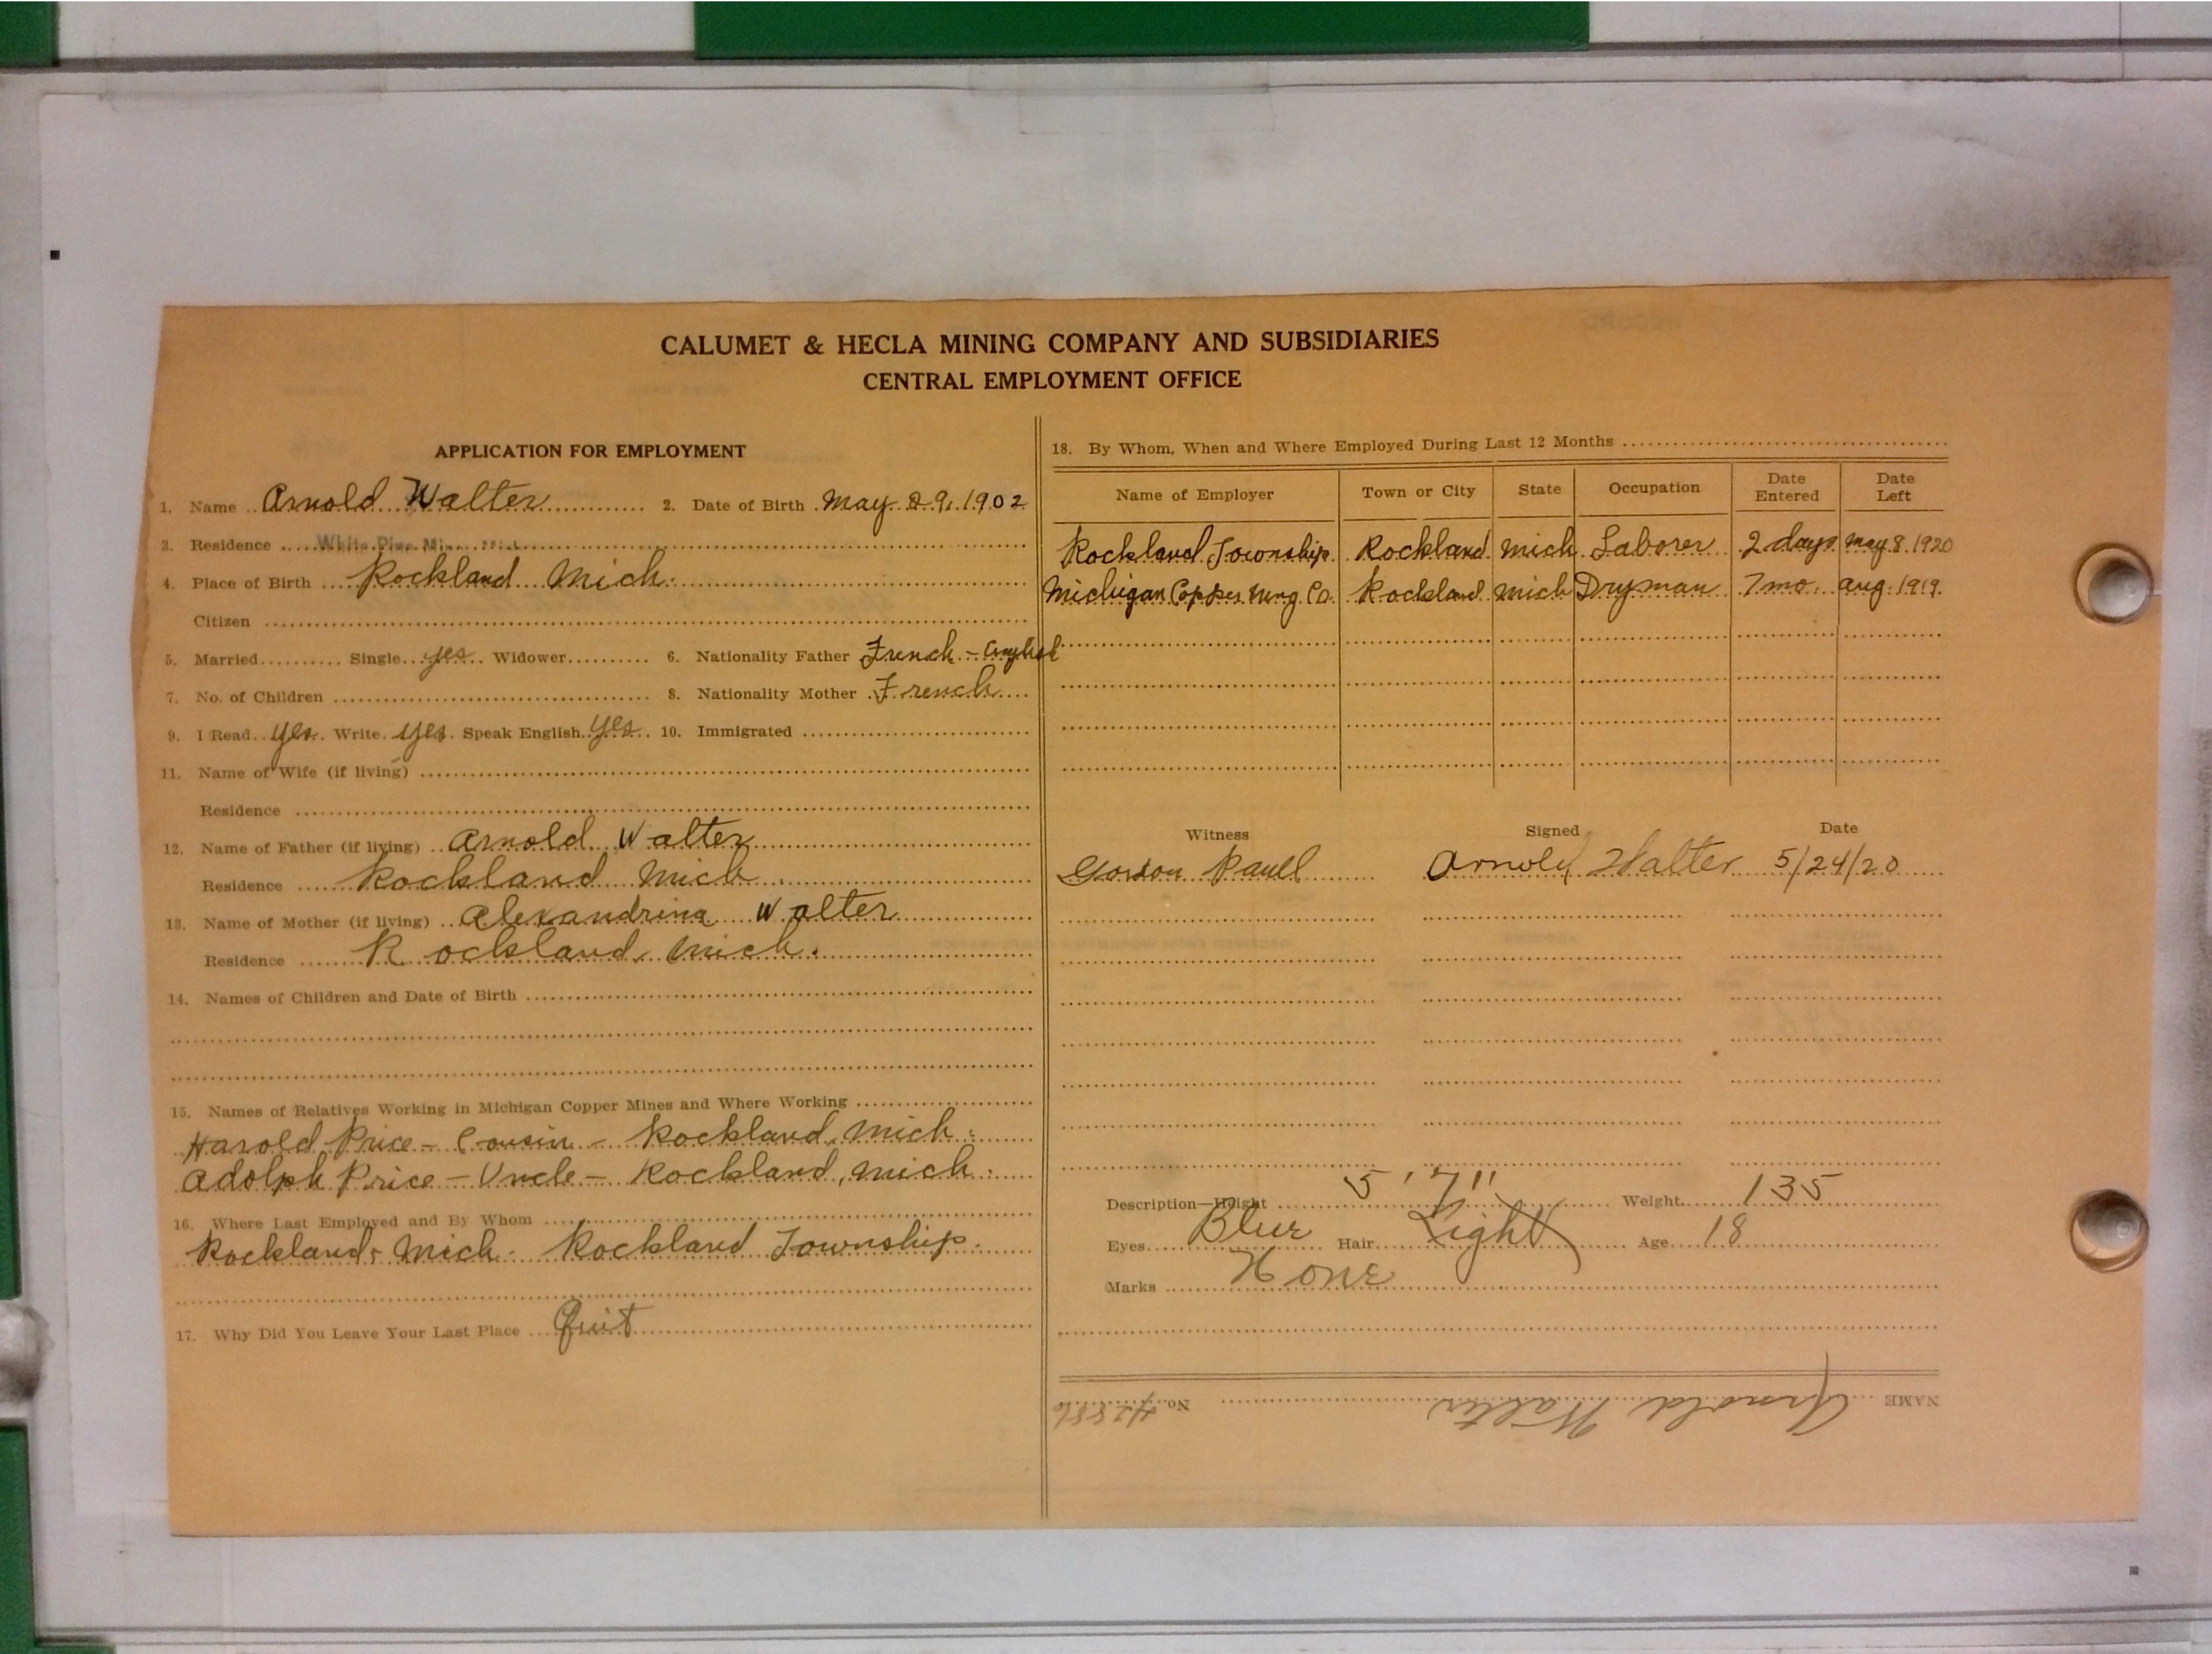 CALUMET & HECLA MINING COMPANY AND SUBSIDIARIES
CENTRAL EMPLOYMENT OFFICE
APPLICATION FOR EMPLOYMENT
1. Name Arnold Walter 2. Date of Birth May 29, 1902
3. Residence White Pine Mine Mich.
4. Place of Birth Rockland Mich.
Citizen
5. Married Single yes Widower 6. Nationality Father French - English
7. No. of Children 8. Nationality Mother French
9. I Read yes. Write yes. Speak English yes 10. Immigrated
11. Name of Wife (if living)
Residence
12. Name of Father (if living) Arnold Walter
Residence Rockland Mich.
13. Name of Mother (if living) Alexandrina Walter
Residence Rockland, Mich.
14. Names of Children and Date of Birth
15. Names of Relatives Working in Michigan Copper Mines and Where Working
Harold Price - Cousin - Rockland, Mich.
Adolph Price - Uncle - Rockland, Mich.
16. Where Last Employed and By Whom
Rockland, Mich. Rockland Township.
17. Why Did You Leave Your Last Place Quit
18. By Whom, When and Where Employed During Last 12 Months
Name of Employer Town or City State Occupation Date Entered Date Left
Rockland Township. Rockland Mich. Laborer 2 days May 8 1920
Michigan Copper Mng. Co. Rockland Mich Dryman 7 mo. Aug. 1919.
Witness Signed Date
Gordon Arnold Walter 5/24/20
Description—Height 5'7" Weight 135
Eyes Blue Hair Light Age 18
Marks None
NAME Arnold Walter No.